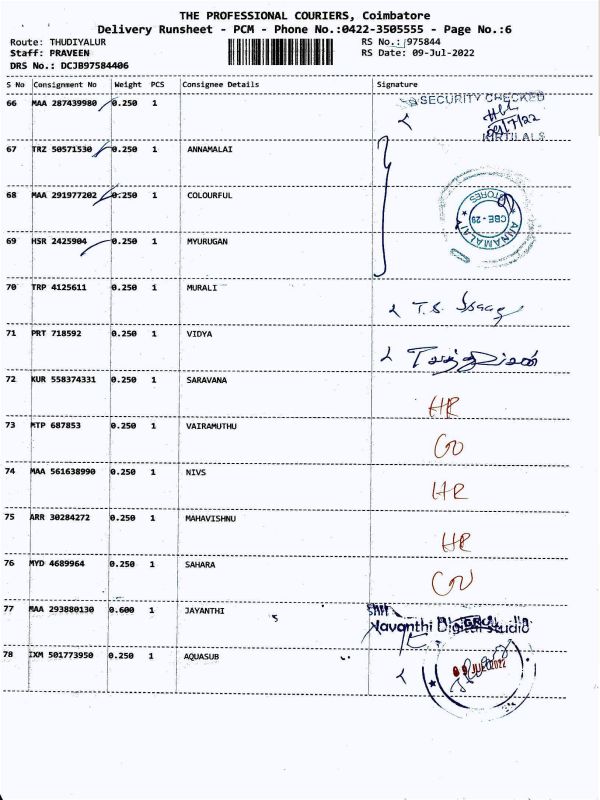 THE PROFESSIONAL COURIERS, Coimbatore
Delivery Runsheet - PCM - Phone No.:0422-3505555 - Page No.:6
Route: THUDIYALUR RS No.: 975844
Staff: PRAVEEN RS Date: 09-Jul-2022
DRS No.: DCJB97584406
S No Consignment No Weight PCS Consignee Details Signature
66 MAA 287439980 0.250 1 SECURITY CHECKED
KIRTILALS
67 TRZ 50571530 0.250 1 ANNAMALAI
68 MAA 291977202 0.250 1 COLOURFUL
STORES
CBE - 29
ANNAMALAI
69 HSR 2425904 0.250 1 MYURUGAN
70 TRP 4125611 0.250 1 MURALI T.S.
71 PRT 718592 0.250 1 VIDYA
72 KUR 558374331 0.250 1 SARAVANA HR
73 MTP 687853 0.250 1 VAIRAMUTHU
74 MAA 561638990 0.250 1 NIVS HR
75 ARR 30284272 0.250 1 MAHAVISHNU HR
76 MYD 4689964 0.250 1 SAHARA
77 MAA 293880130 0.600 1 JAYANTHI
Digital Studio
78 IXM 501773950 0.250 1 AQUASUB
09 JUL 2022